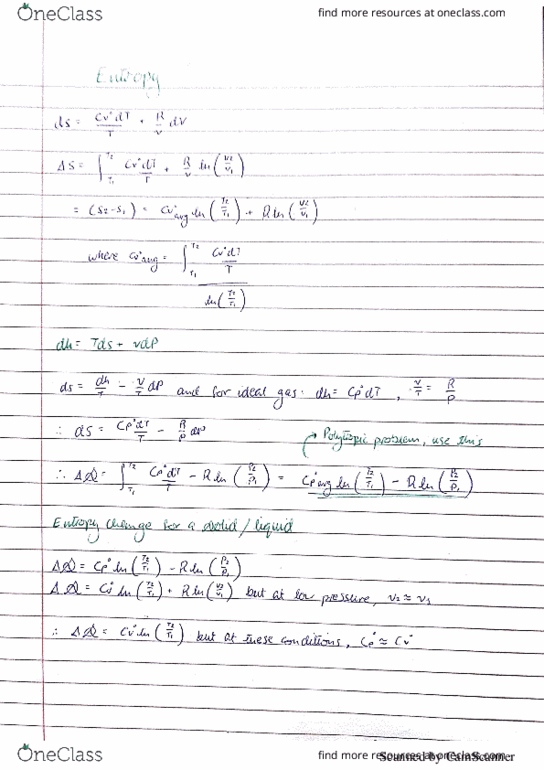 OneClass find more resources at oneclass.com
Entropy
ds = Cv°dT/T + R/v dV
ΔS = ∫_T1^T2 Cv°dT/T + R/v ln(v2/v1)
= (S2-S1) = Cv°avg ln(T2/T1) + R ln(v2/v1)
where Cv°avg = ∫_T1^T2 Cv°dT/T
ln(T2/T1)
dh = Tds + vdP
ds = dh/T - v/T dP and for ideal gas: dh = Cp°dT, v/T = R/P
∴ ds = Cp°dT/T - R/P dP
→ Polytropic problem, use this
∴ Δs = ∫_T1^T2 Cp°dT/T - R ln(P2/P1) = Cp°avg ln(T2/T1) - R ln(P2/P1)
Entropy change for a solid/liquid
Δs = Cp° ln(T2/T1) - R ln(P2/P1)
Δs = Cv° ln(T2/T1) + R ln(v2/v1) but at low pressure, v2 ≈ v1
∴ Δs = Cv° ln(T2/T1) but at these conditions, Cp° ≈ Cv°
OneClass find more resources at oneclass.com
Scanned by CamScanner